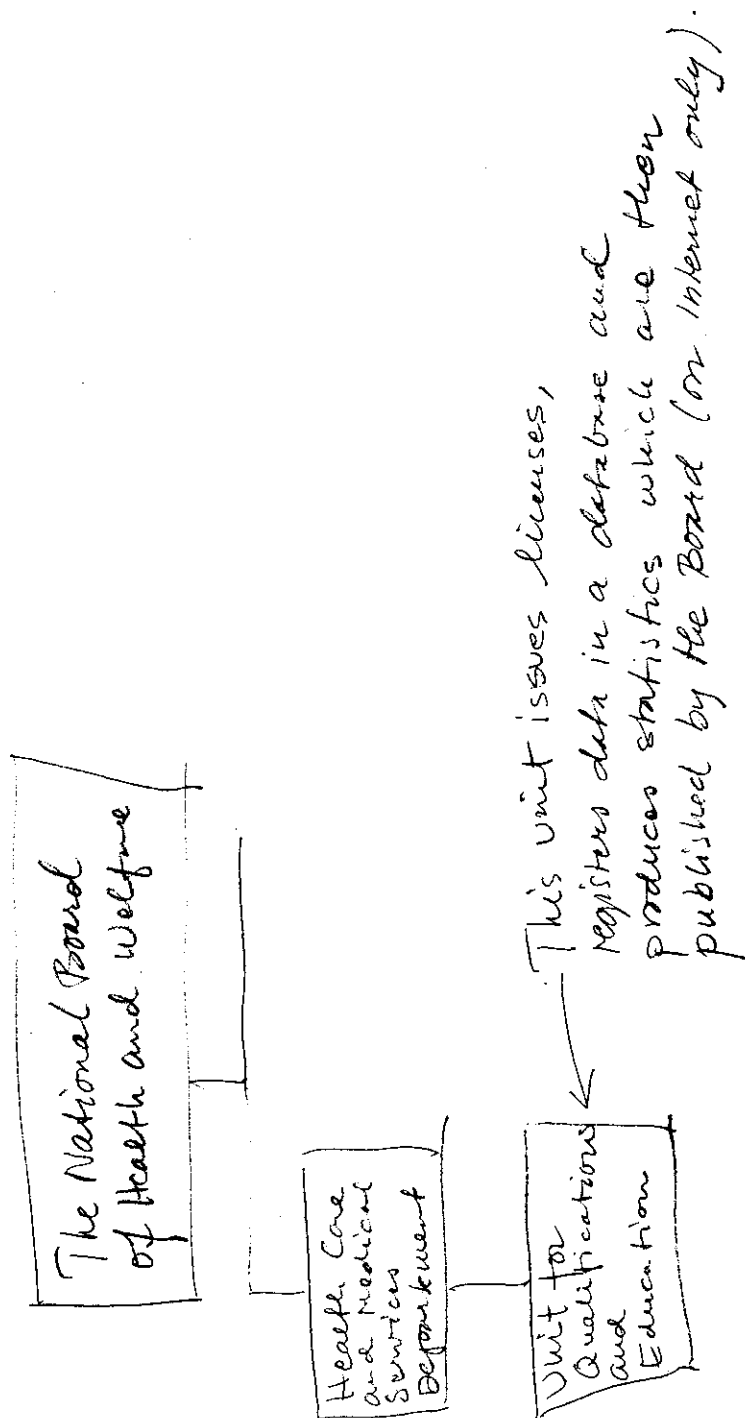 The National Board
of Health and Welfare
Health Care
and Medical
Services
Department
Unit for
Qualifications
and
Education
This unit issues licenses,
registers data in a database and
produces statistics which are then
published by the Board (on internet only).